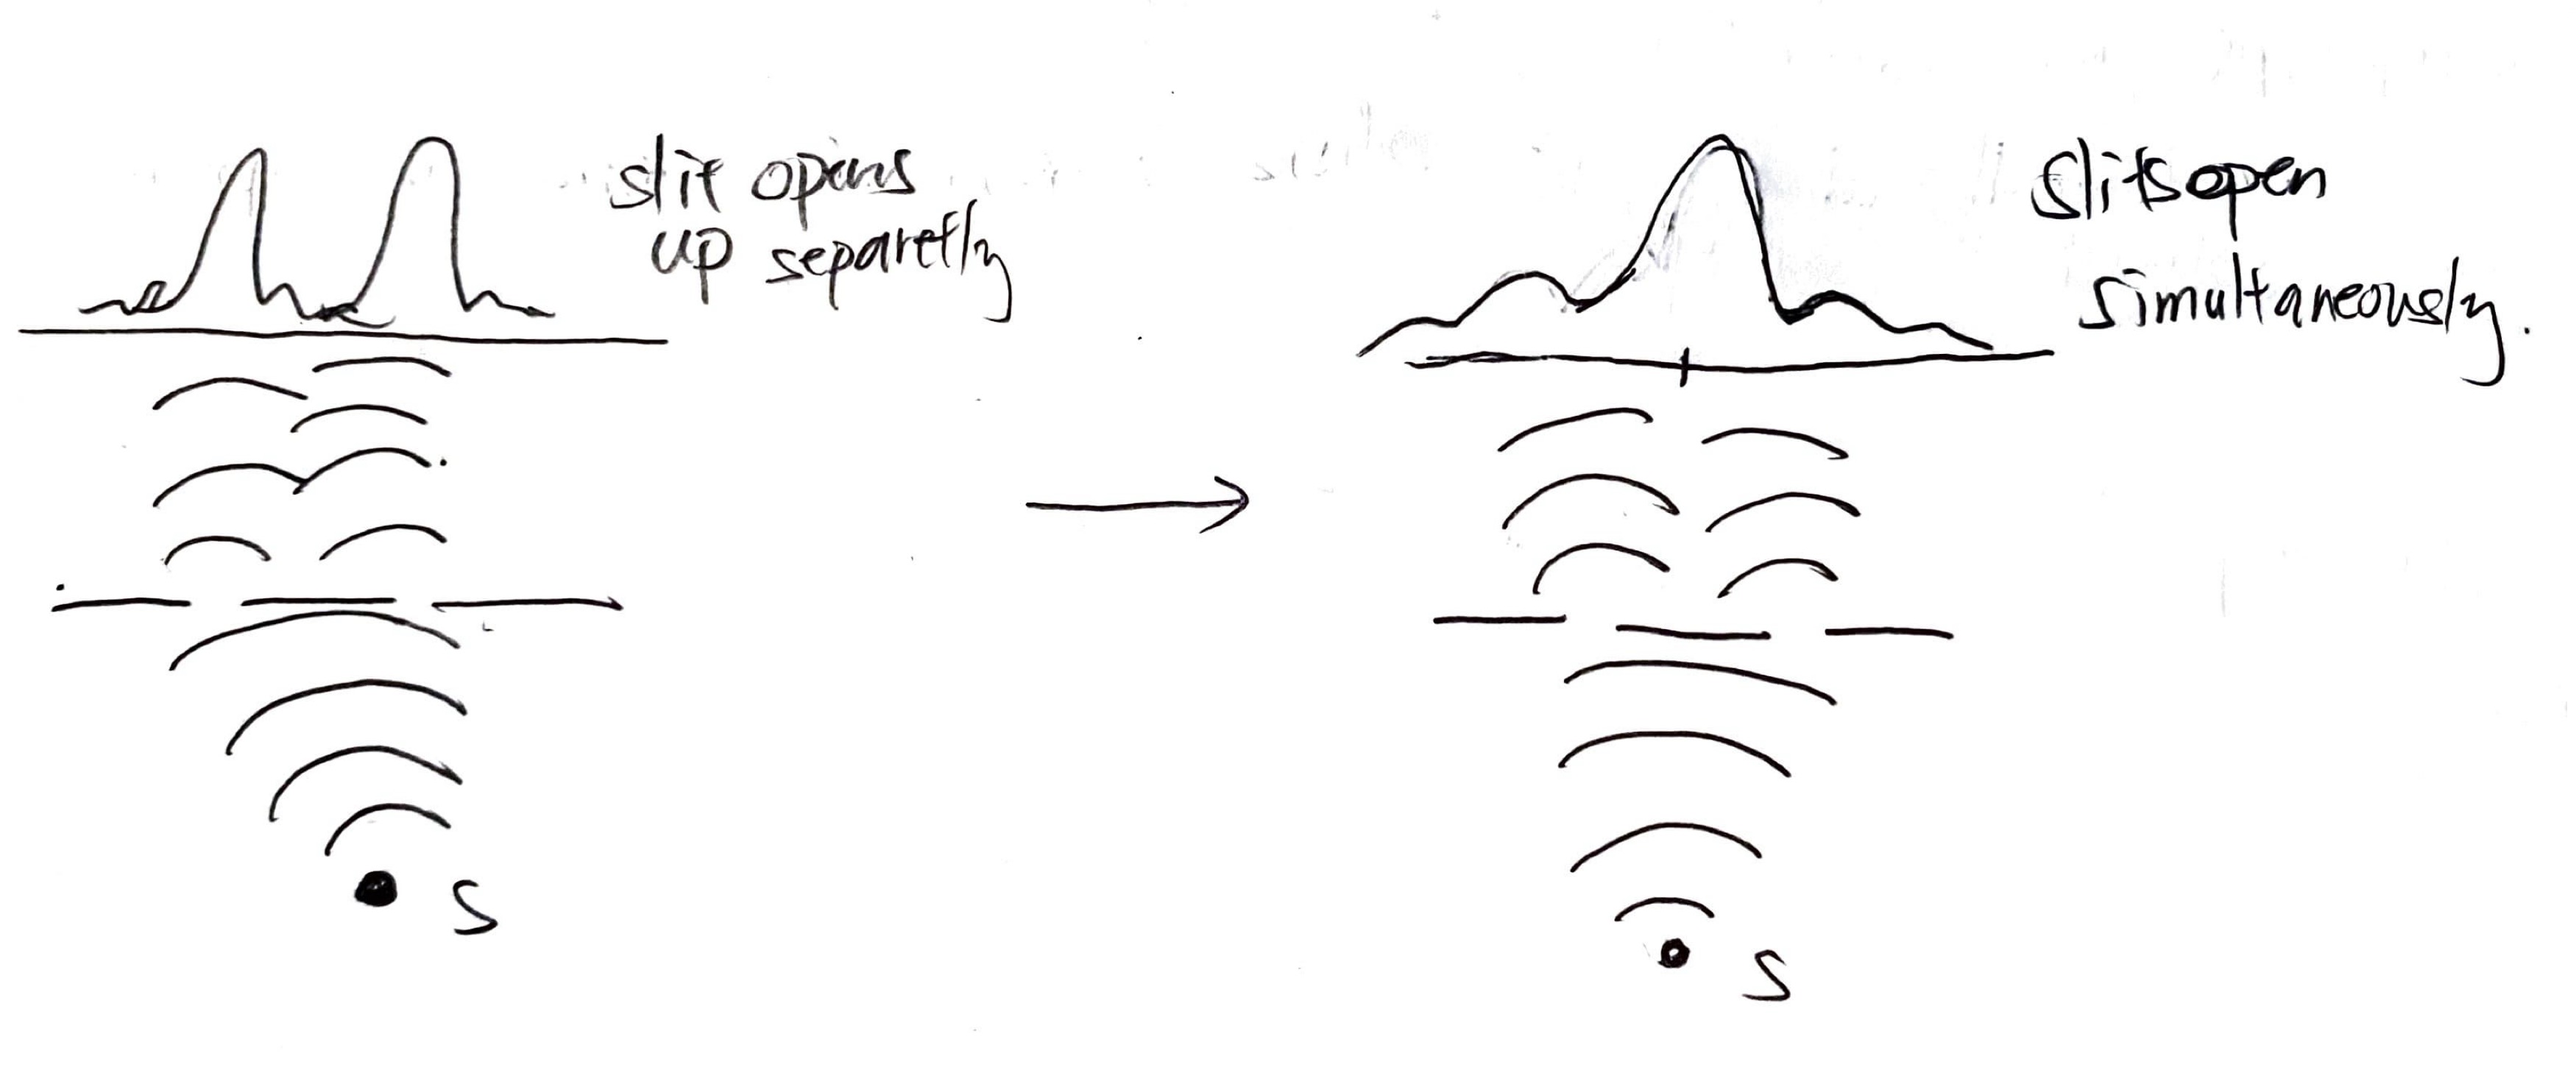 slit opens
up separetly
slits open
simultaneously.
S
S